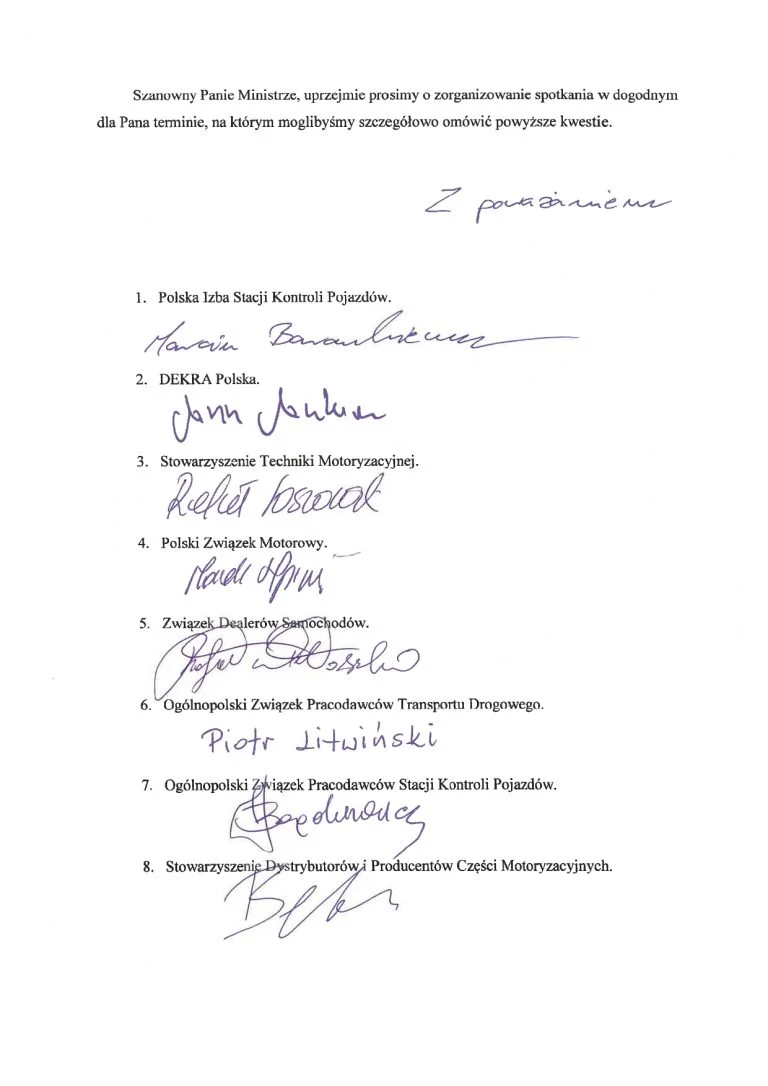 Szanowny Panie Ministrze, uprzejmie prosimy o zorganizowanie spotkania w dogodnym
dla Pana terminie, na którym moglibyśmy szczegółowo omówić powyższe kwestie.
Z poważaniem
1. Polska Izba Stacji Kontroli Pojazdów.
Marcin
2. DEKRA Polska.
3. Stowarzyszenie Techniki Motoryzacyjnej.
Rafał
4. Polski Związek Motorowy.
5. Związek Dealerów Samochodów.
6. Ogólnopolski Związek Pracodawców Transportu Drogowego.
Piotr Litwiński
7. Ogólnopolski Związek Pracodawców Stacji Kontroli Pojazdów.
8. Stowarzyszenie Dystrybutorów i Producentów Części Motoryzacyjnych.